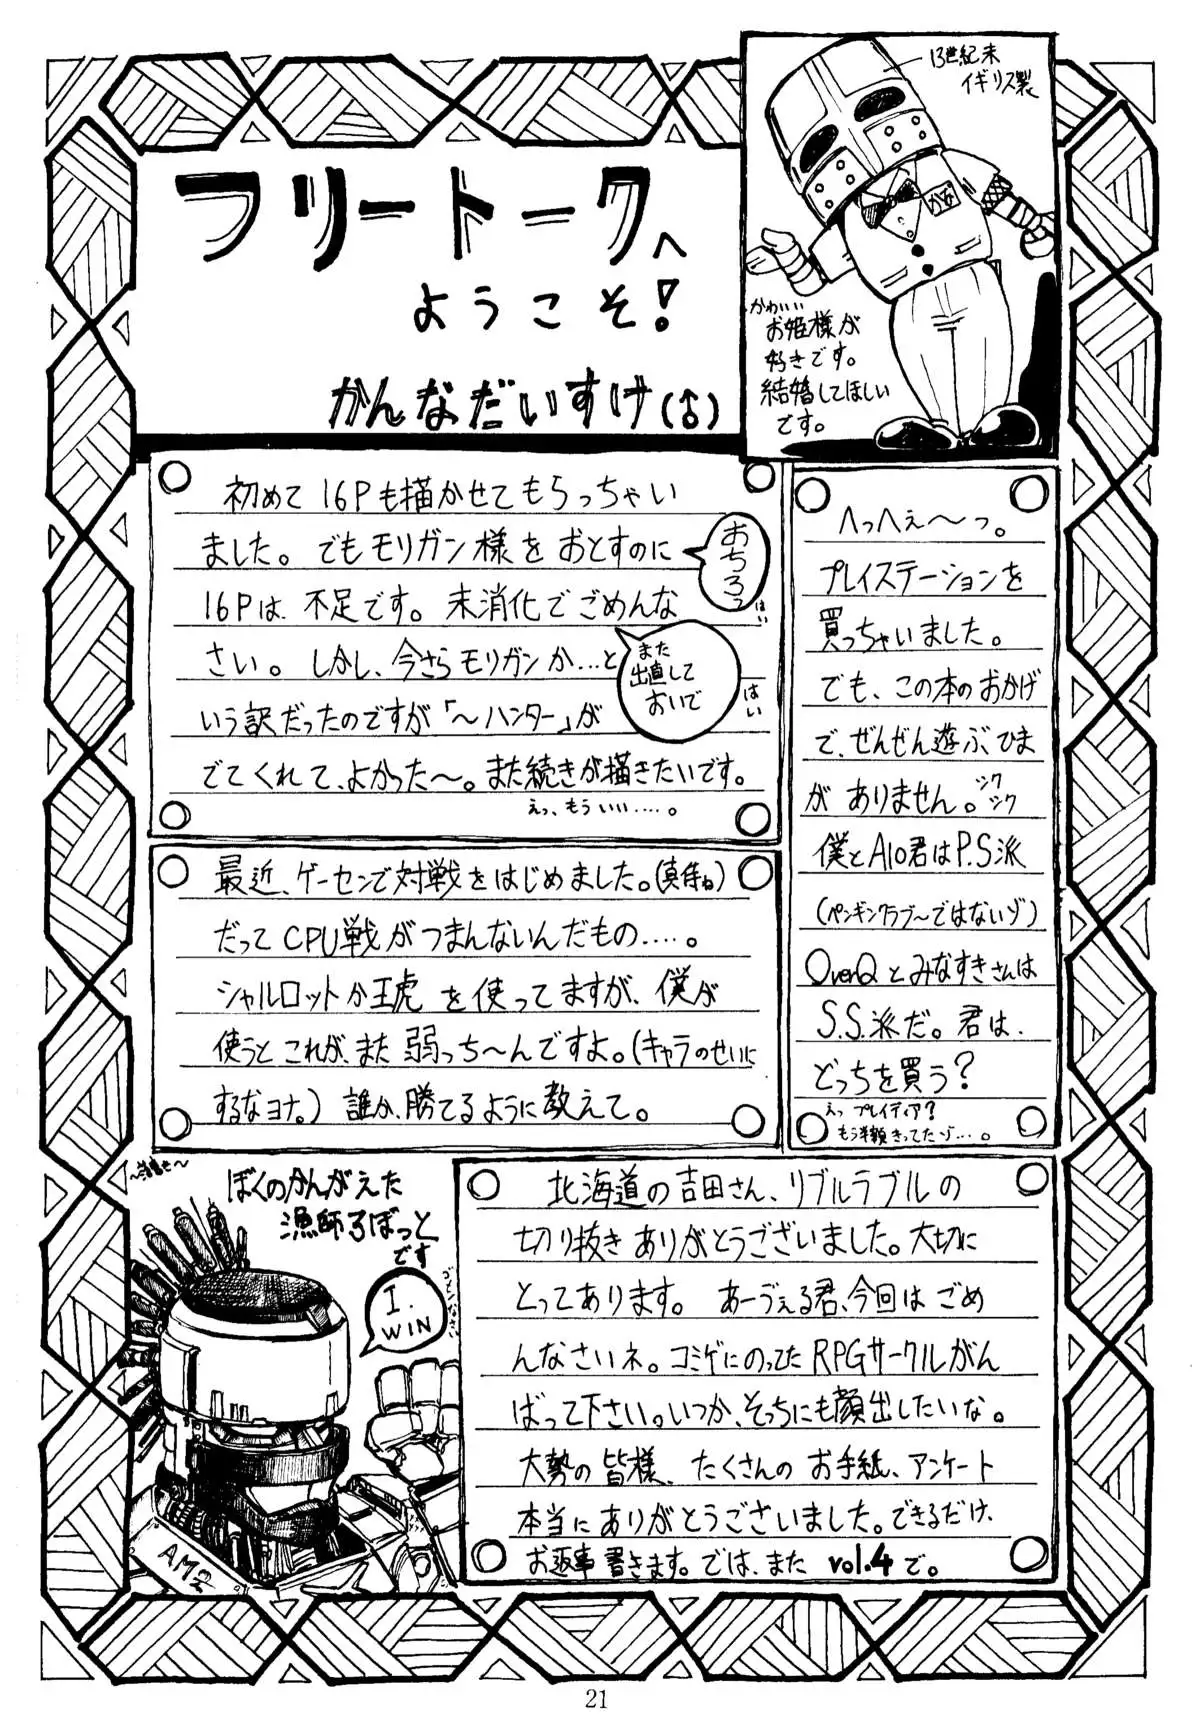 フリートークへ
ようこそ!
かんなだいすけ(♂)
13世紀末
イギリス製
かな
かわいい
お姫様が
好きです。
結婚してほしい
です。
初めて16Pも描かせてもらっちゃい
ました。でもモリガン様をおとすのに
16Pは、不足です。未消化でごめんな
さい。しかし、今さらモリガンか…と
いう訳だったのですが「〜ハンター」が
でてくれて、よかった〜。また続きが描きたいです。
えっ、もういい……。
おちろっ
はい
また
出直して
おいで
はい
へっへぇ〜っ。
プレイステーションを
買っちゃいました。
でも、この本のおかげ
で、ぜんぜん遊ぶ、ひま
がありません。シクシク
僕とAlo君はP.S派
(ペンギンクラブ〜ではないゾ)
OverQとみなすきさんは
S.S.派だ。君は、
どっちを買う?
えっ プレイディア?
もう半額きってたゾ…。
最近、ゲーセンで対戦をはじめました。(真侍ね)
だってCPU戦がつまんないんだもの……。
シャルロットか王虎を使ってますが、僕が
使うとこれが、また弱っち〜んですよ。(キャラのせいに
するなヨナ。)誰か、勝てるように教えて。
ぼくのかんがえた
漁師ろぼっと
です
I.
WIN
AM2
北海道の吉田さん、リブルラブルの
切り抜きありがとうございました。大切に
とってあります。あーヴぇる君、今回はごめ
んなさいネ。コミゲにのってたRPGサークルがん
ばって下さい。いつか、そっちにも顔出したいな。
大勢の皆様、たくさんのお手紙、アンケート
本当にありがとうございました。できるだけ、
お返事書きます。では、またvol.4で。
21